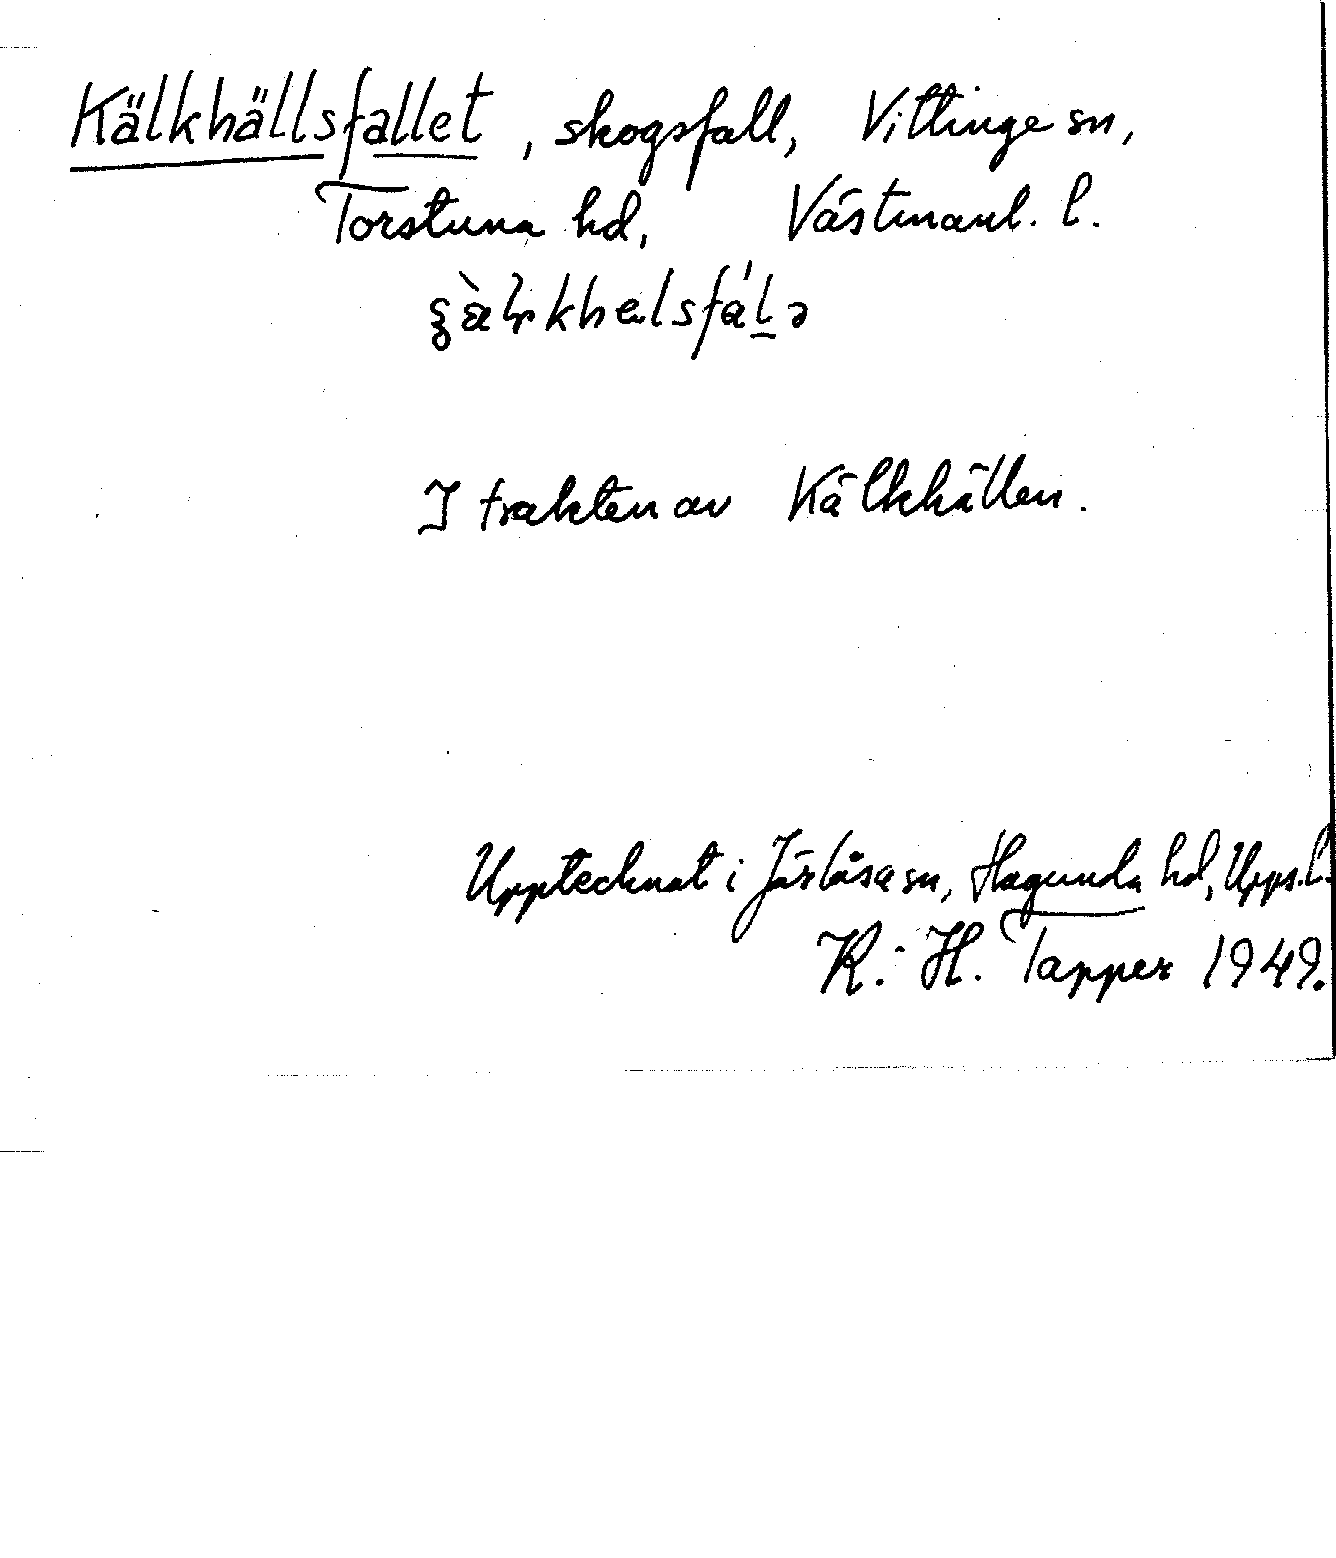 Kälkhällsfallet, skogsfall, Vittinge sn,
Torstuna hd, Västmanl. l.
I trakten av Kälkhällen.
Upptecknat i Järlåsa sn, Hagunda hd, Upps. l.
K.-H. Tapper 1949.